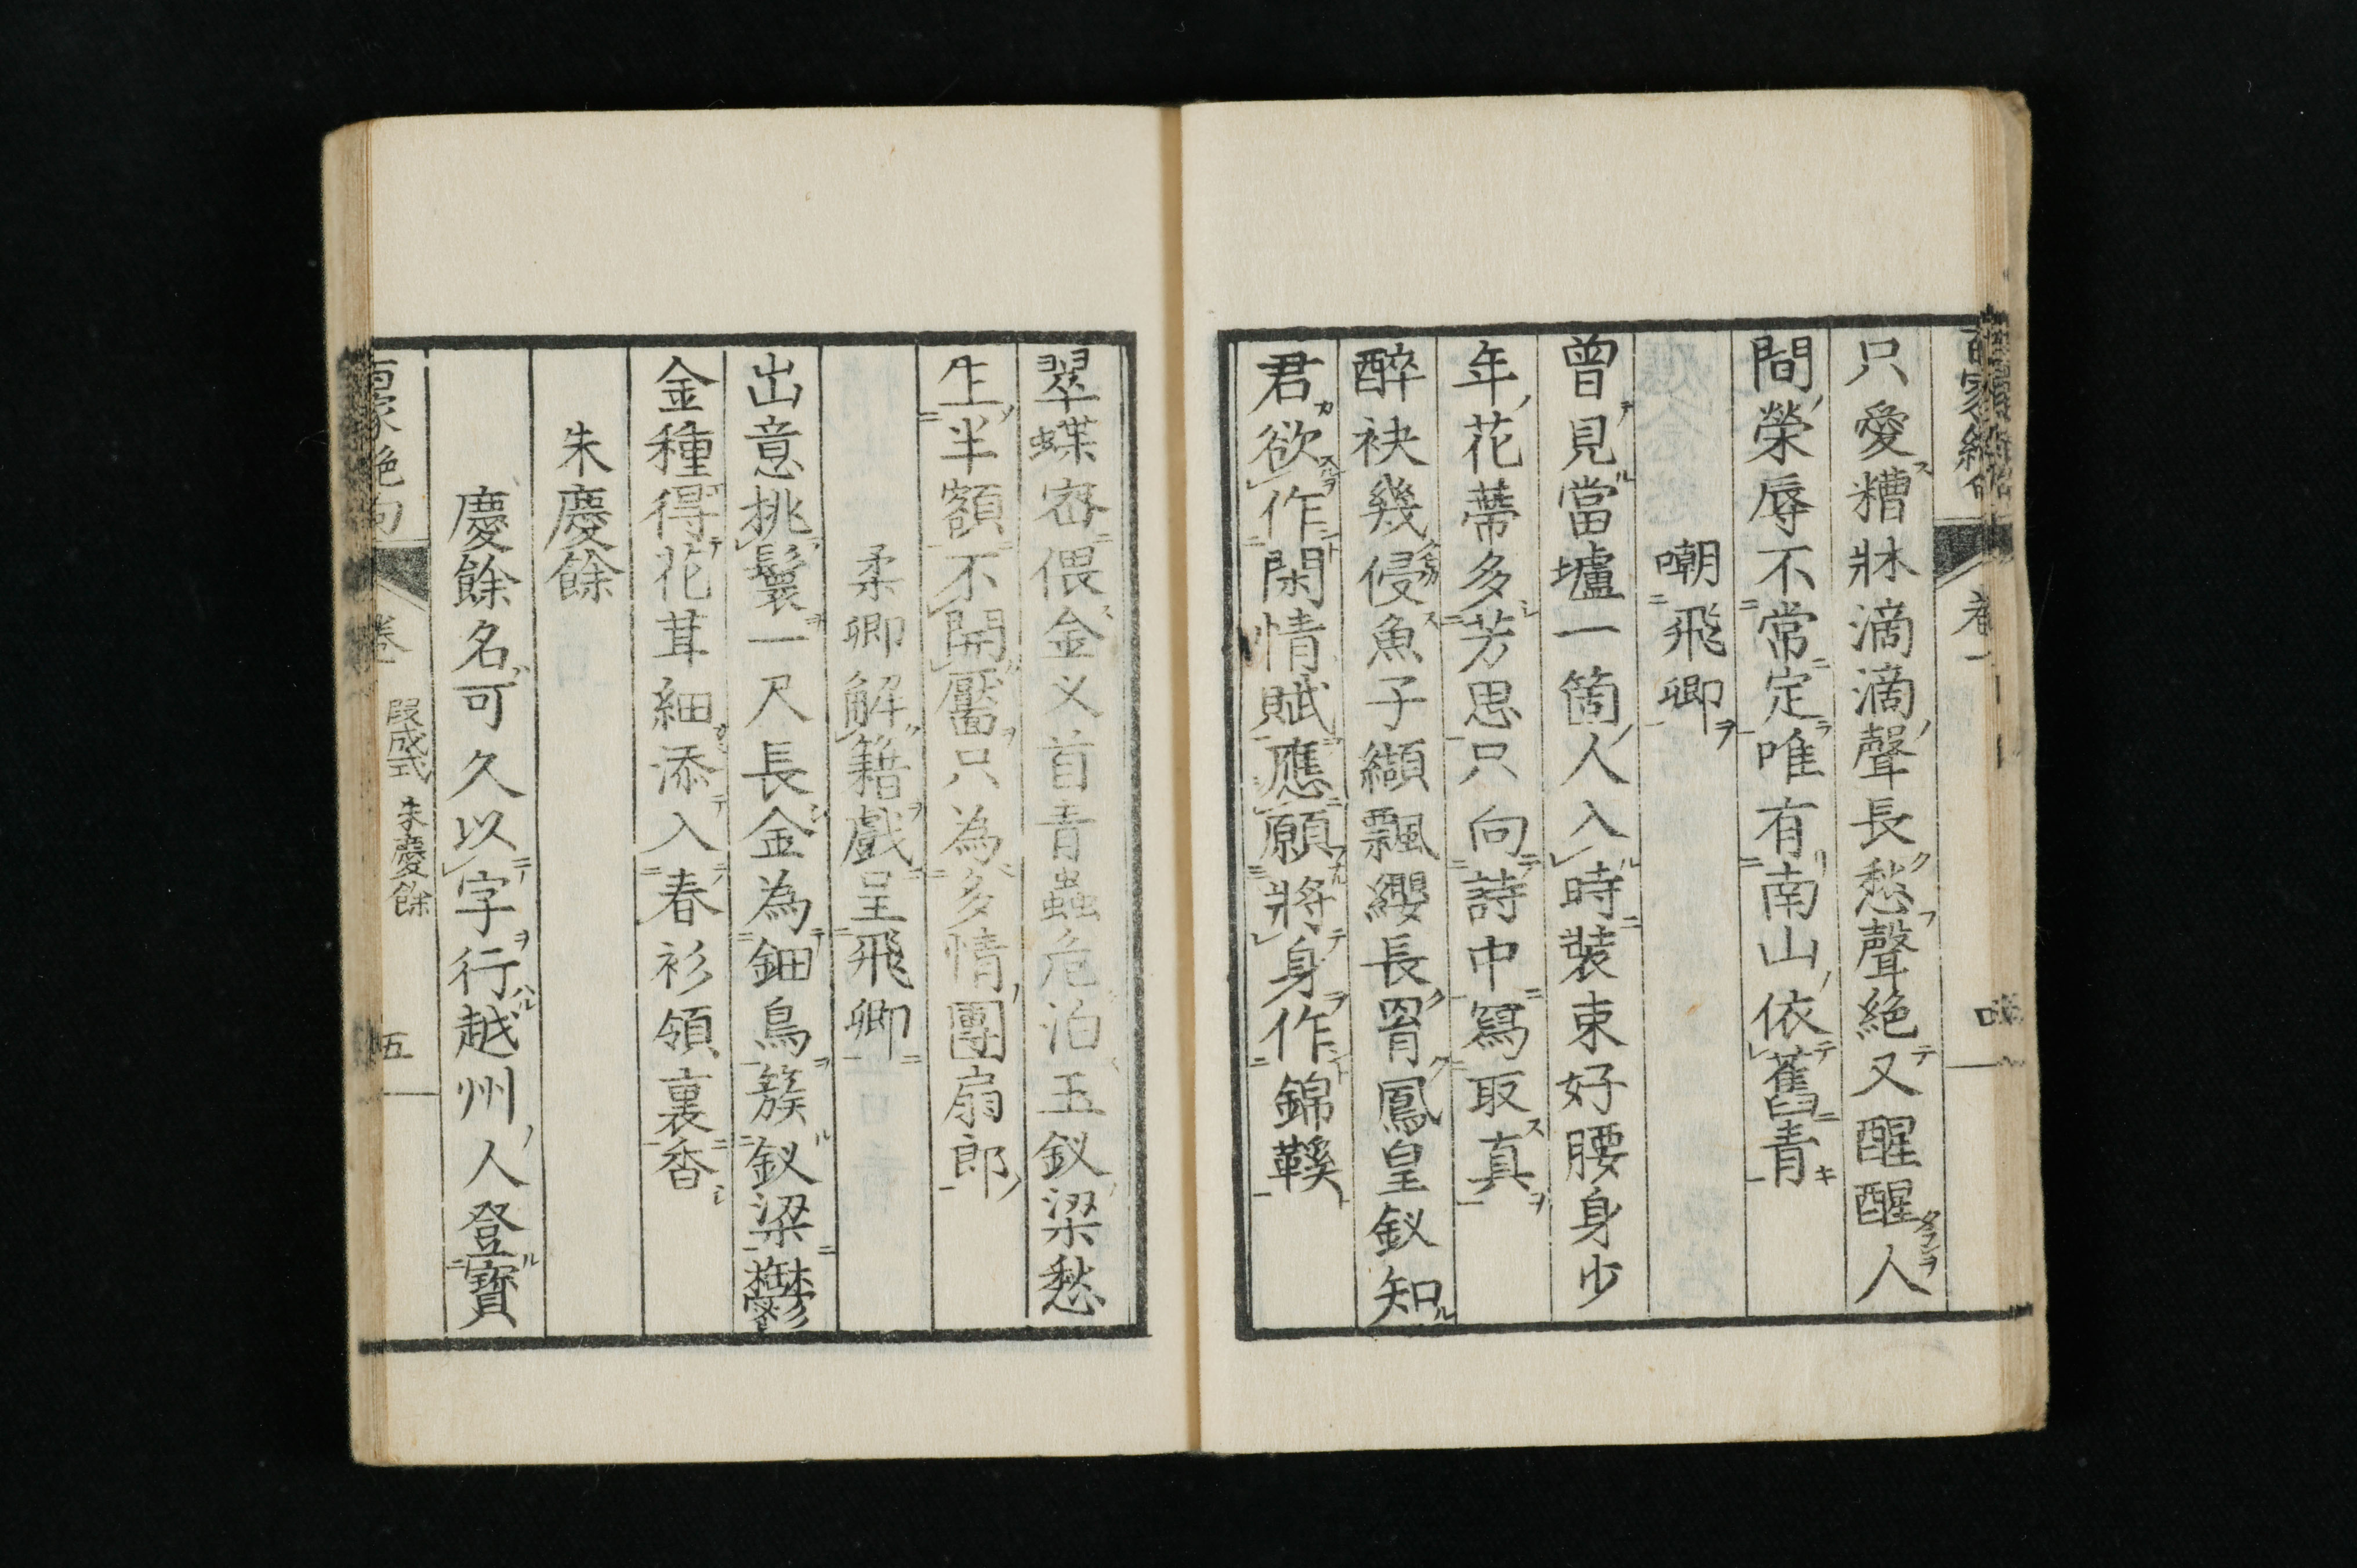 百家絶句
卷一
只愛糟牀滴滴聲長愁聲絶又醒醒人
間榮辱不常定唯有南山依舊青
嘲飛卿
曾見當壚一箇人入時裝束好腰身少
年花蒂多芳思只向詩中寫取真
醉袂幾侵魚子纈飄纓長罥鳳皇釵知
君欲作閑情賦應願將身作錦鞵
翠蝶密偎金叉首青蟲危泊玉釵梁愁
生半額不開靨只為多情團扇郎
柔卿解籍戲呈飛卿
出意挑鬟一尺長金為鈿鳥簇釵梁鬱
金種得花茸細添入春衫領裏香
朱慶餘
慶餘名可久以字行越州人登寶
百家絶句
卷一
段成式 朱慶餘
五